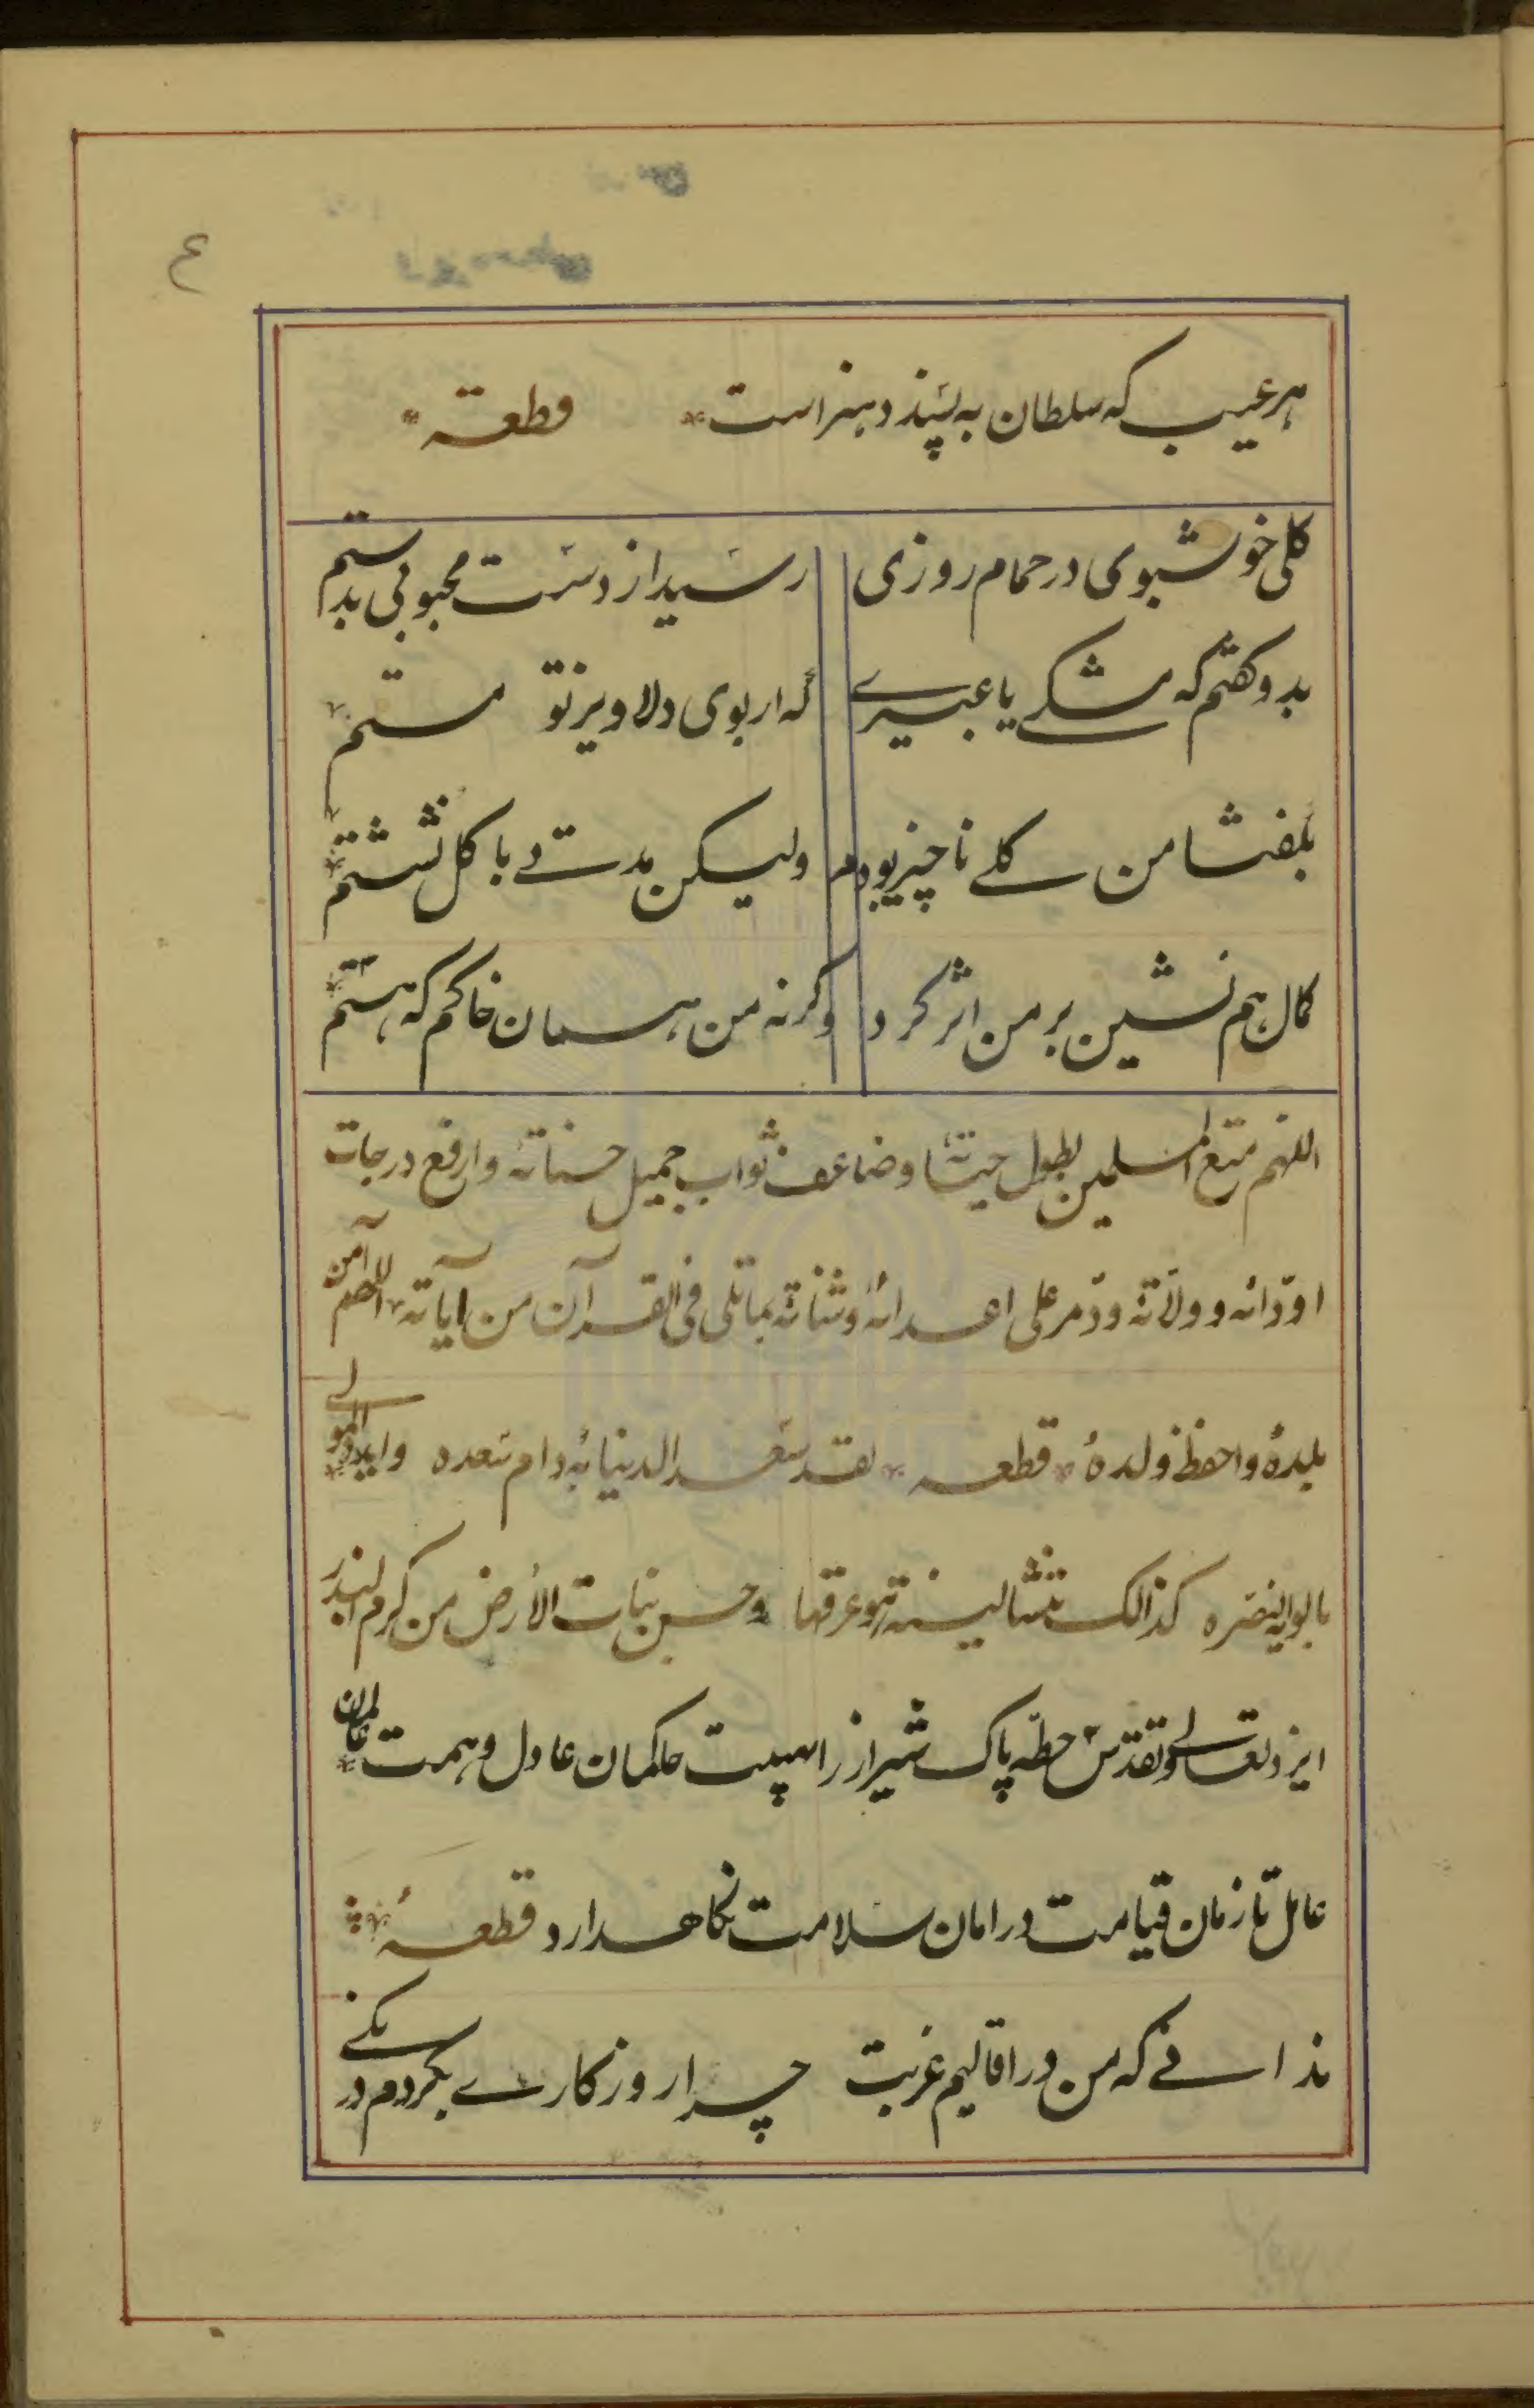 ٤
هر عیب که سلطان به پسندد هنر است قطعه
کلی خوشبوی در حمام روزی رسید از دست محبوبی بدستم
بدو کفتم که مشکے یا عبیرے که از بوی دلاویز تو مستم
بکفتا من کلے ناچیز بودم ولیکن مدتے با کل نشستم
کمال هم نشین بر من اثر کرد وکرنه من همان خاکم که هستم
اللهم متع المسلمین بطول حیته وضاعف ثواب جمیل حسناته وارفع درجات
اودّائه وولاته ودمّر علی اعدائه وشناته بماتلی فی القرآن من آیاته اللهم آمن
بلده واحفظ ولده قطعه لقد سعد الدنیا به دام سعده وایده المولے
بالویه النصره کذالک تنشا لینة هو عرقها وحسن نبات الأرض من کرم البذر
ایزد تعالے وتقدس خطّه پاک شیراز را بهیبت حاکمان عادل وهمت عالمان
عامل تا زمان قیامت در امان سلامت نکاهدارد قطعه
ندانے که من در اقالیم غربت چرا روزکارے بکردم درنکے